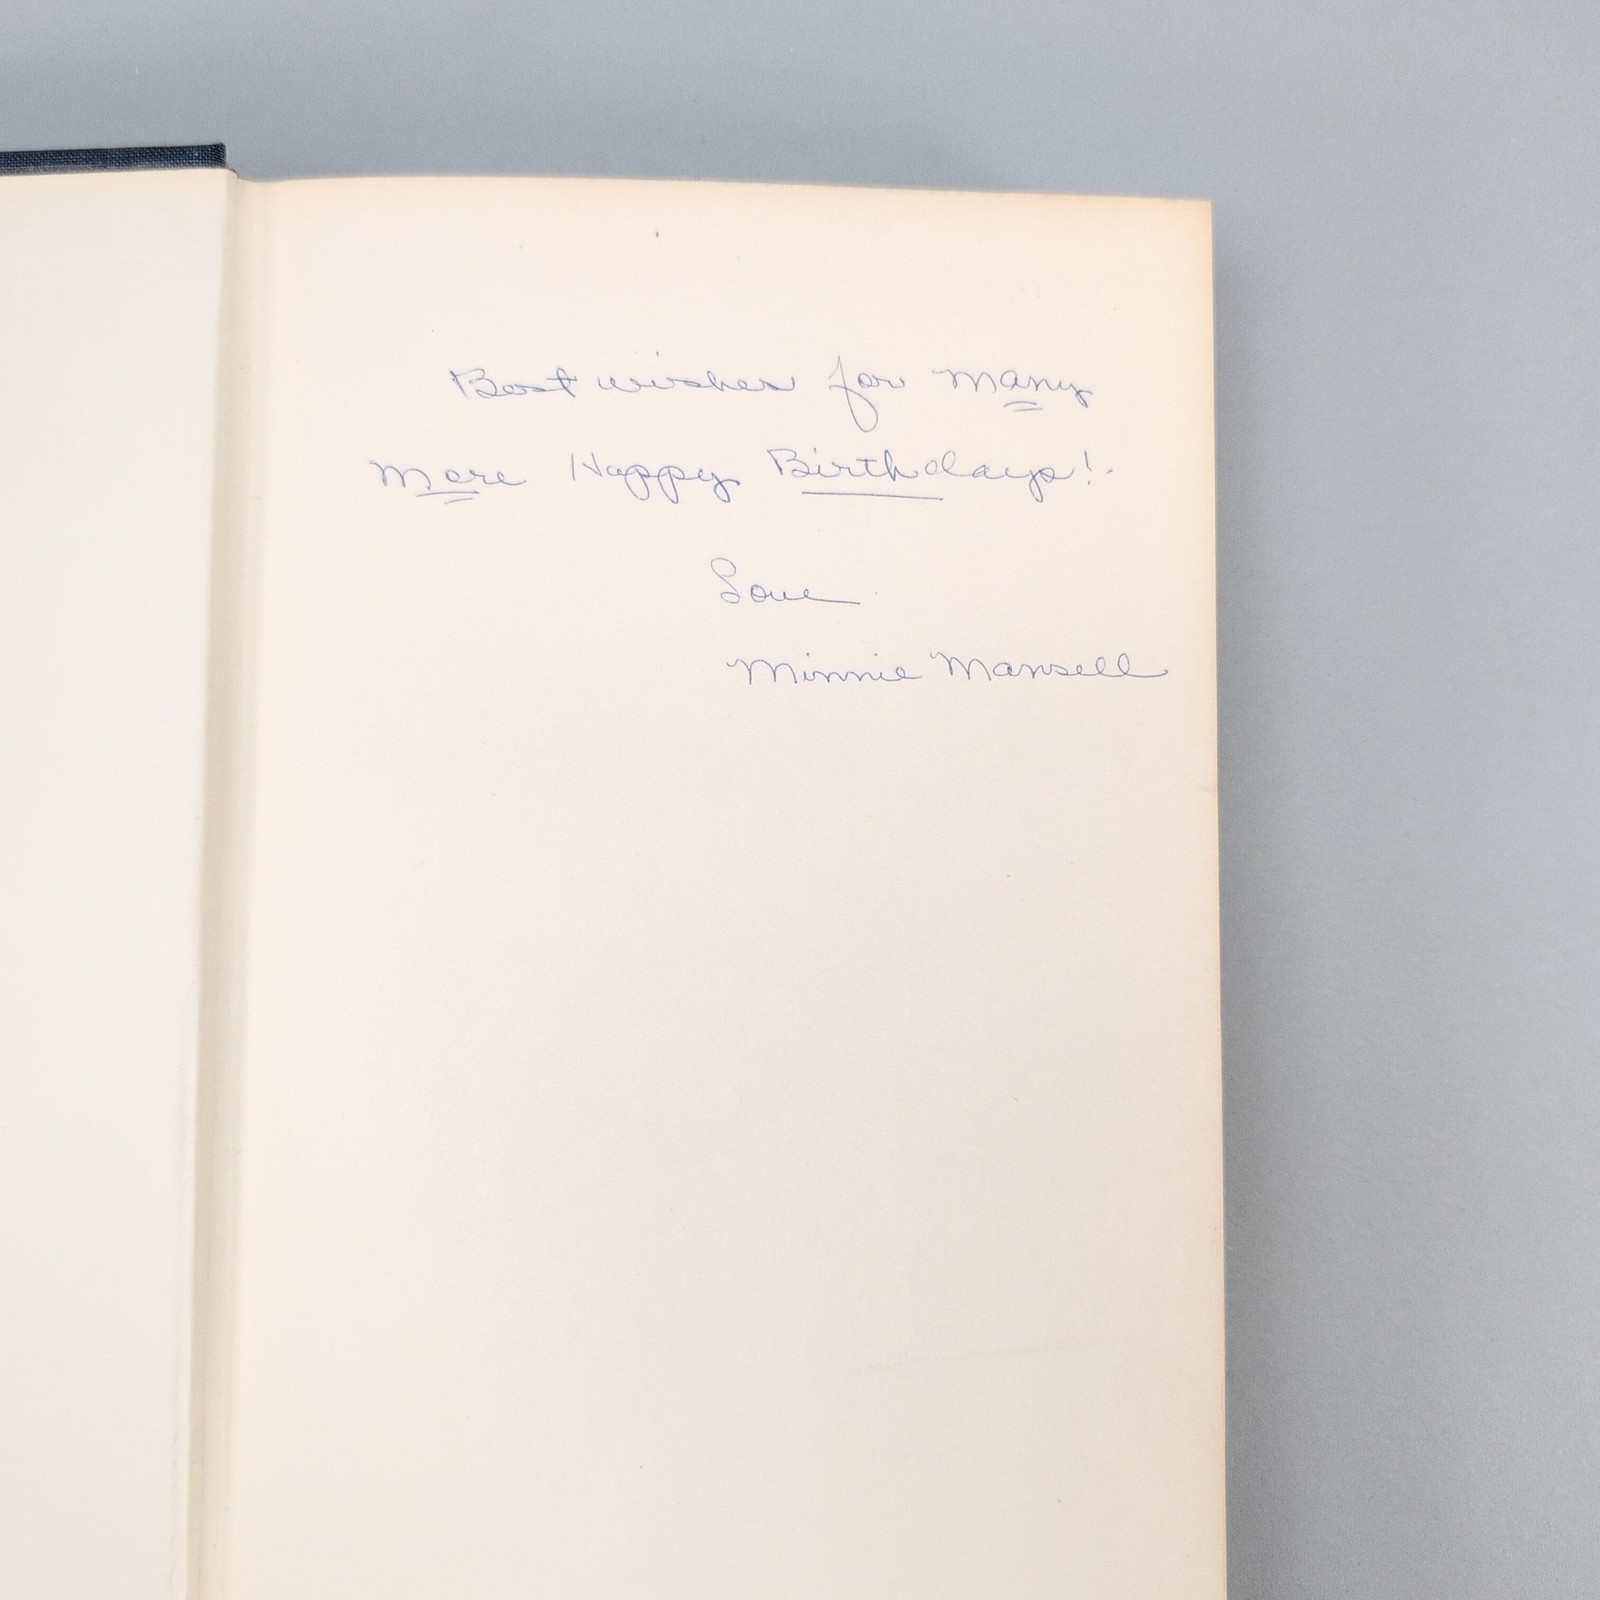 Best wishes for Many
More Happy Birthdays!
Love
Minnie Mansell